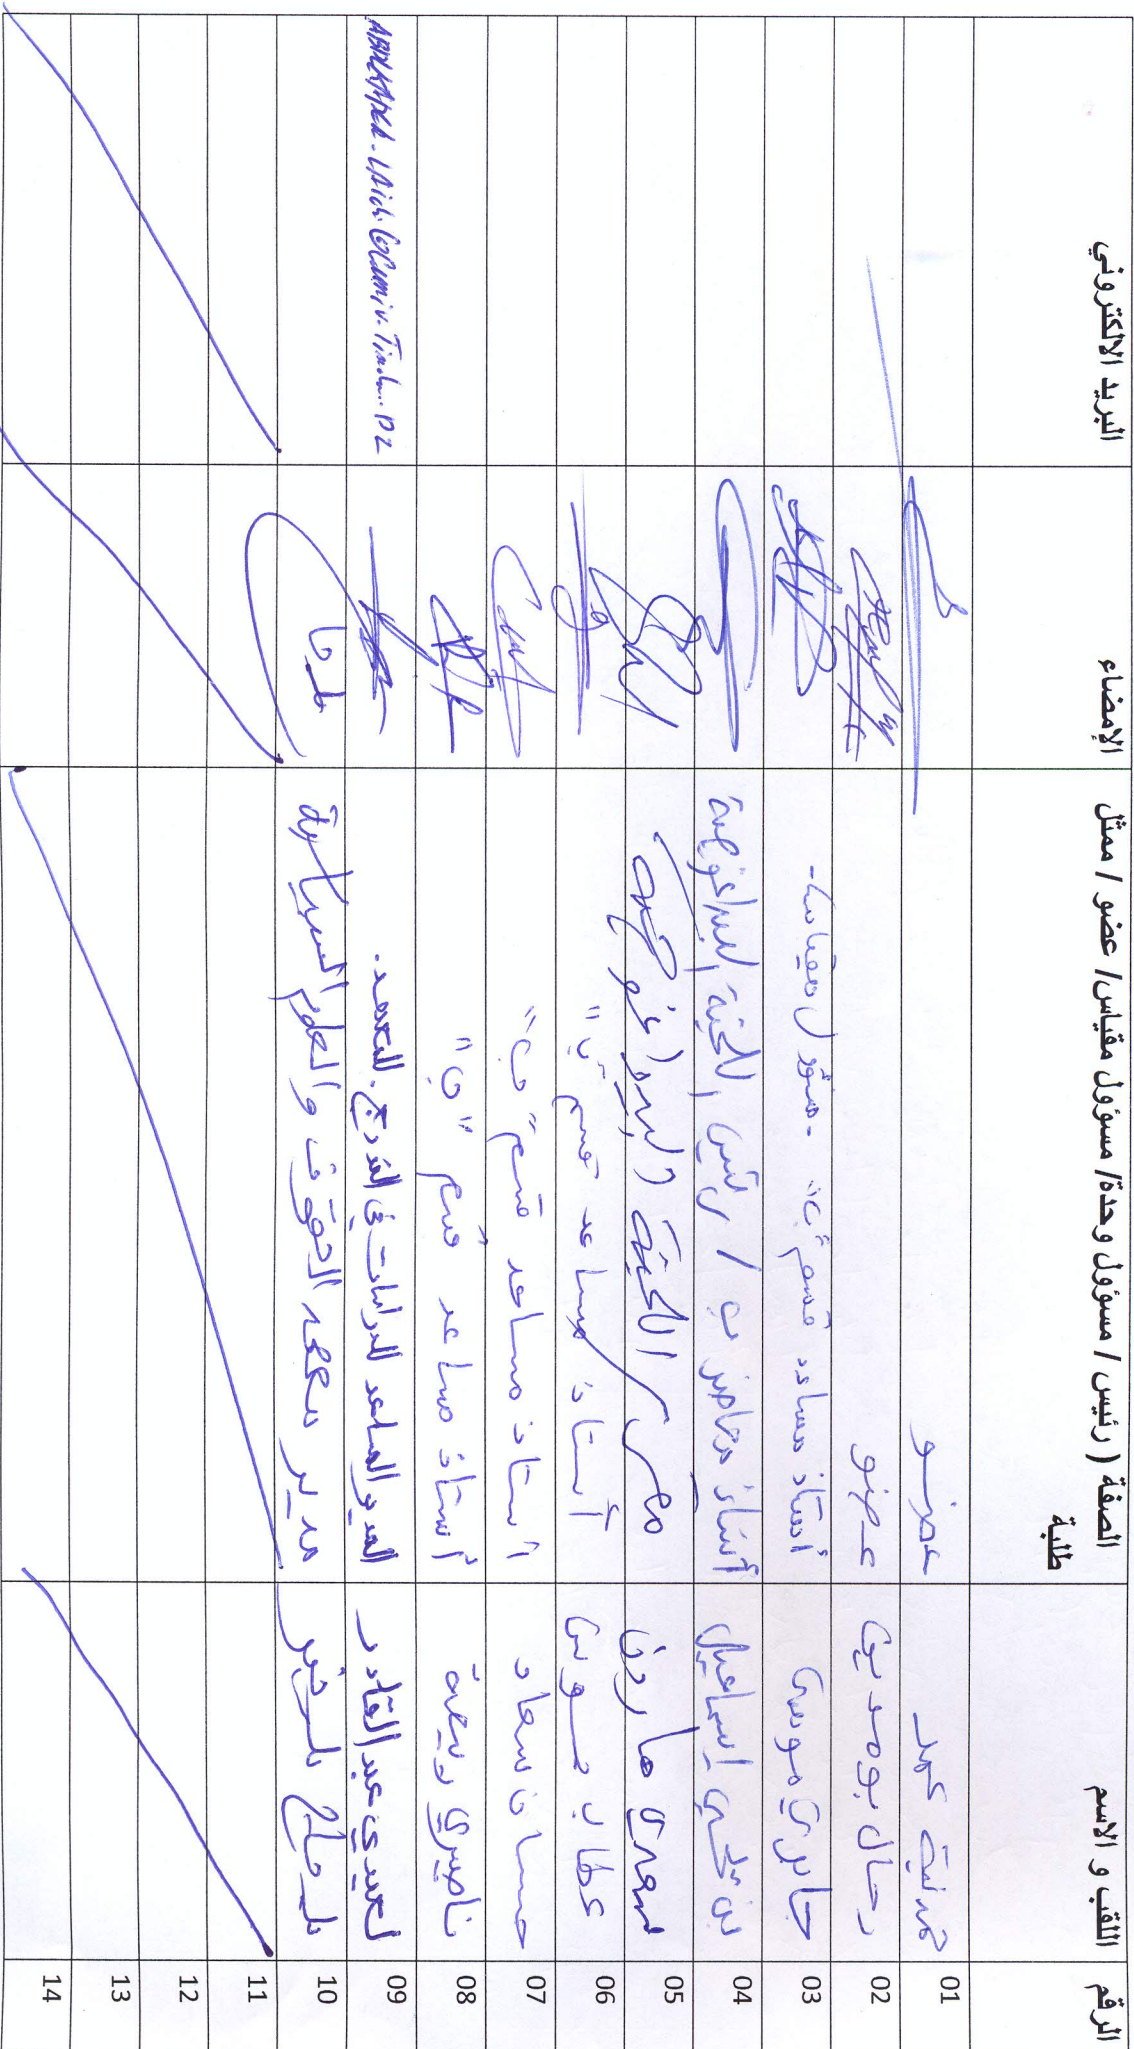 الرقم اللقب و الاسم الصفة (رئيس / مسؤول وحدة/ مسؤول مقياس/ عضو / ممثل طلبة الإمضاء البريد الالكتروني
01 محمد عضو
02 رحال بومدين عضو
03 جابري موسى أستاذ مساعد قسم "ب" - مسؤول مقياس -
04 بن يحيى إسماعيل أستاذ محاضر ب / رئيس اللجنة البيداغوجية
05 سعدي هارون اللجنة البيداغوجية
06 عطاب يونس أستاذ مساعد قسم "ب"
07 حسان سعاد أستاذ مساعد قسم "ب"
08 ناصيري ربيعة أستاذ مساعد قسم "ب"
09 لعيدي عبد القادر المدير المساعد للدراسات في التدرج للمعهد.
10 مدير معهد الحقوق و العلوم السياسية
11
12
13
14